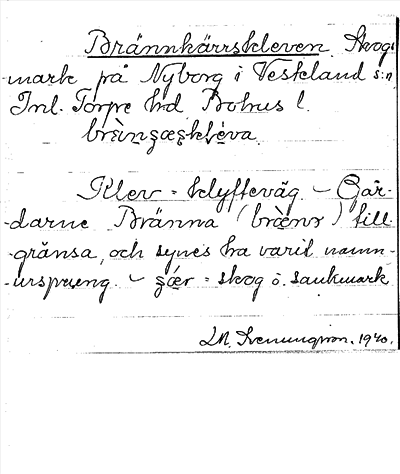 Brännkärrskleven. Skogs-
-mark på Nyborg i Veskland s:n
Inl. Torpe hd Bohus l.
brèn̥ʂæʂkléva.
Klev = klyfteväg. – Går-
-darne Bränna (brèn̥ɤ) till-
-gränsa, och synes ha varit namn-
-ursprung. – ʂǽr = skog o. sankmark
1940.